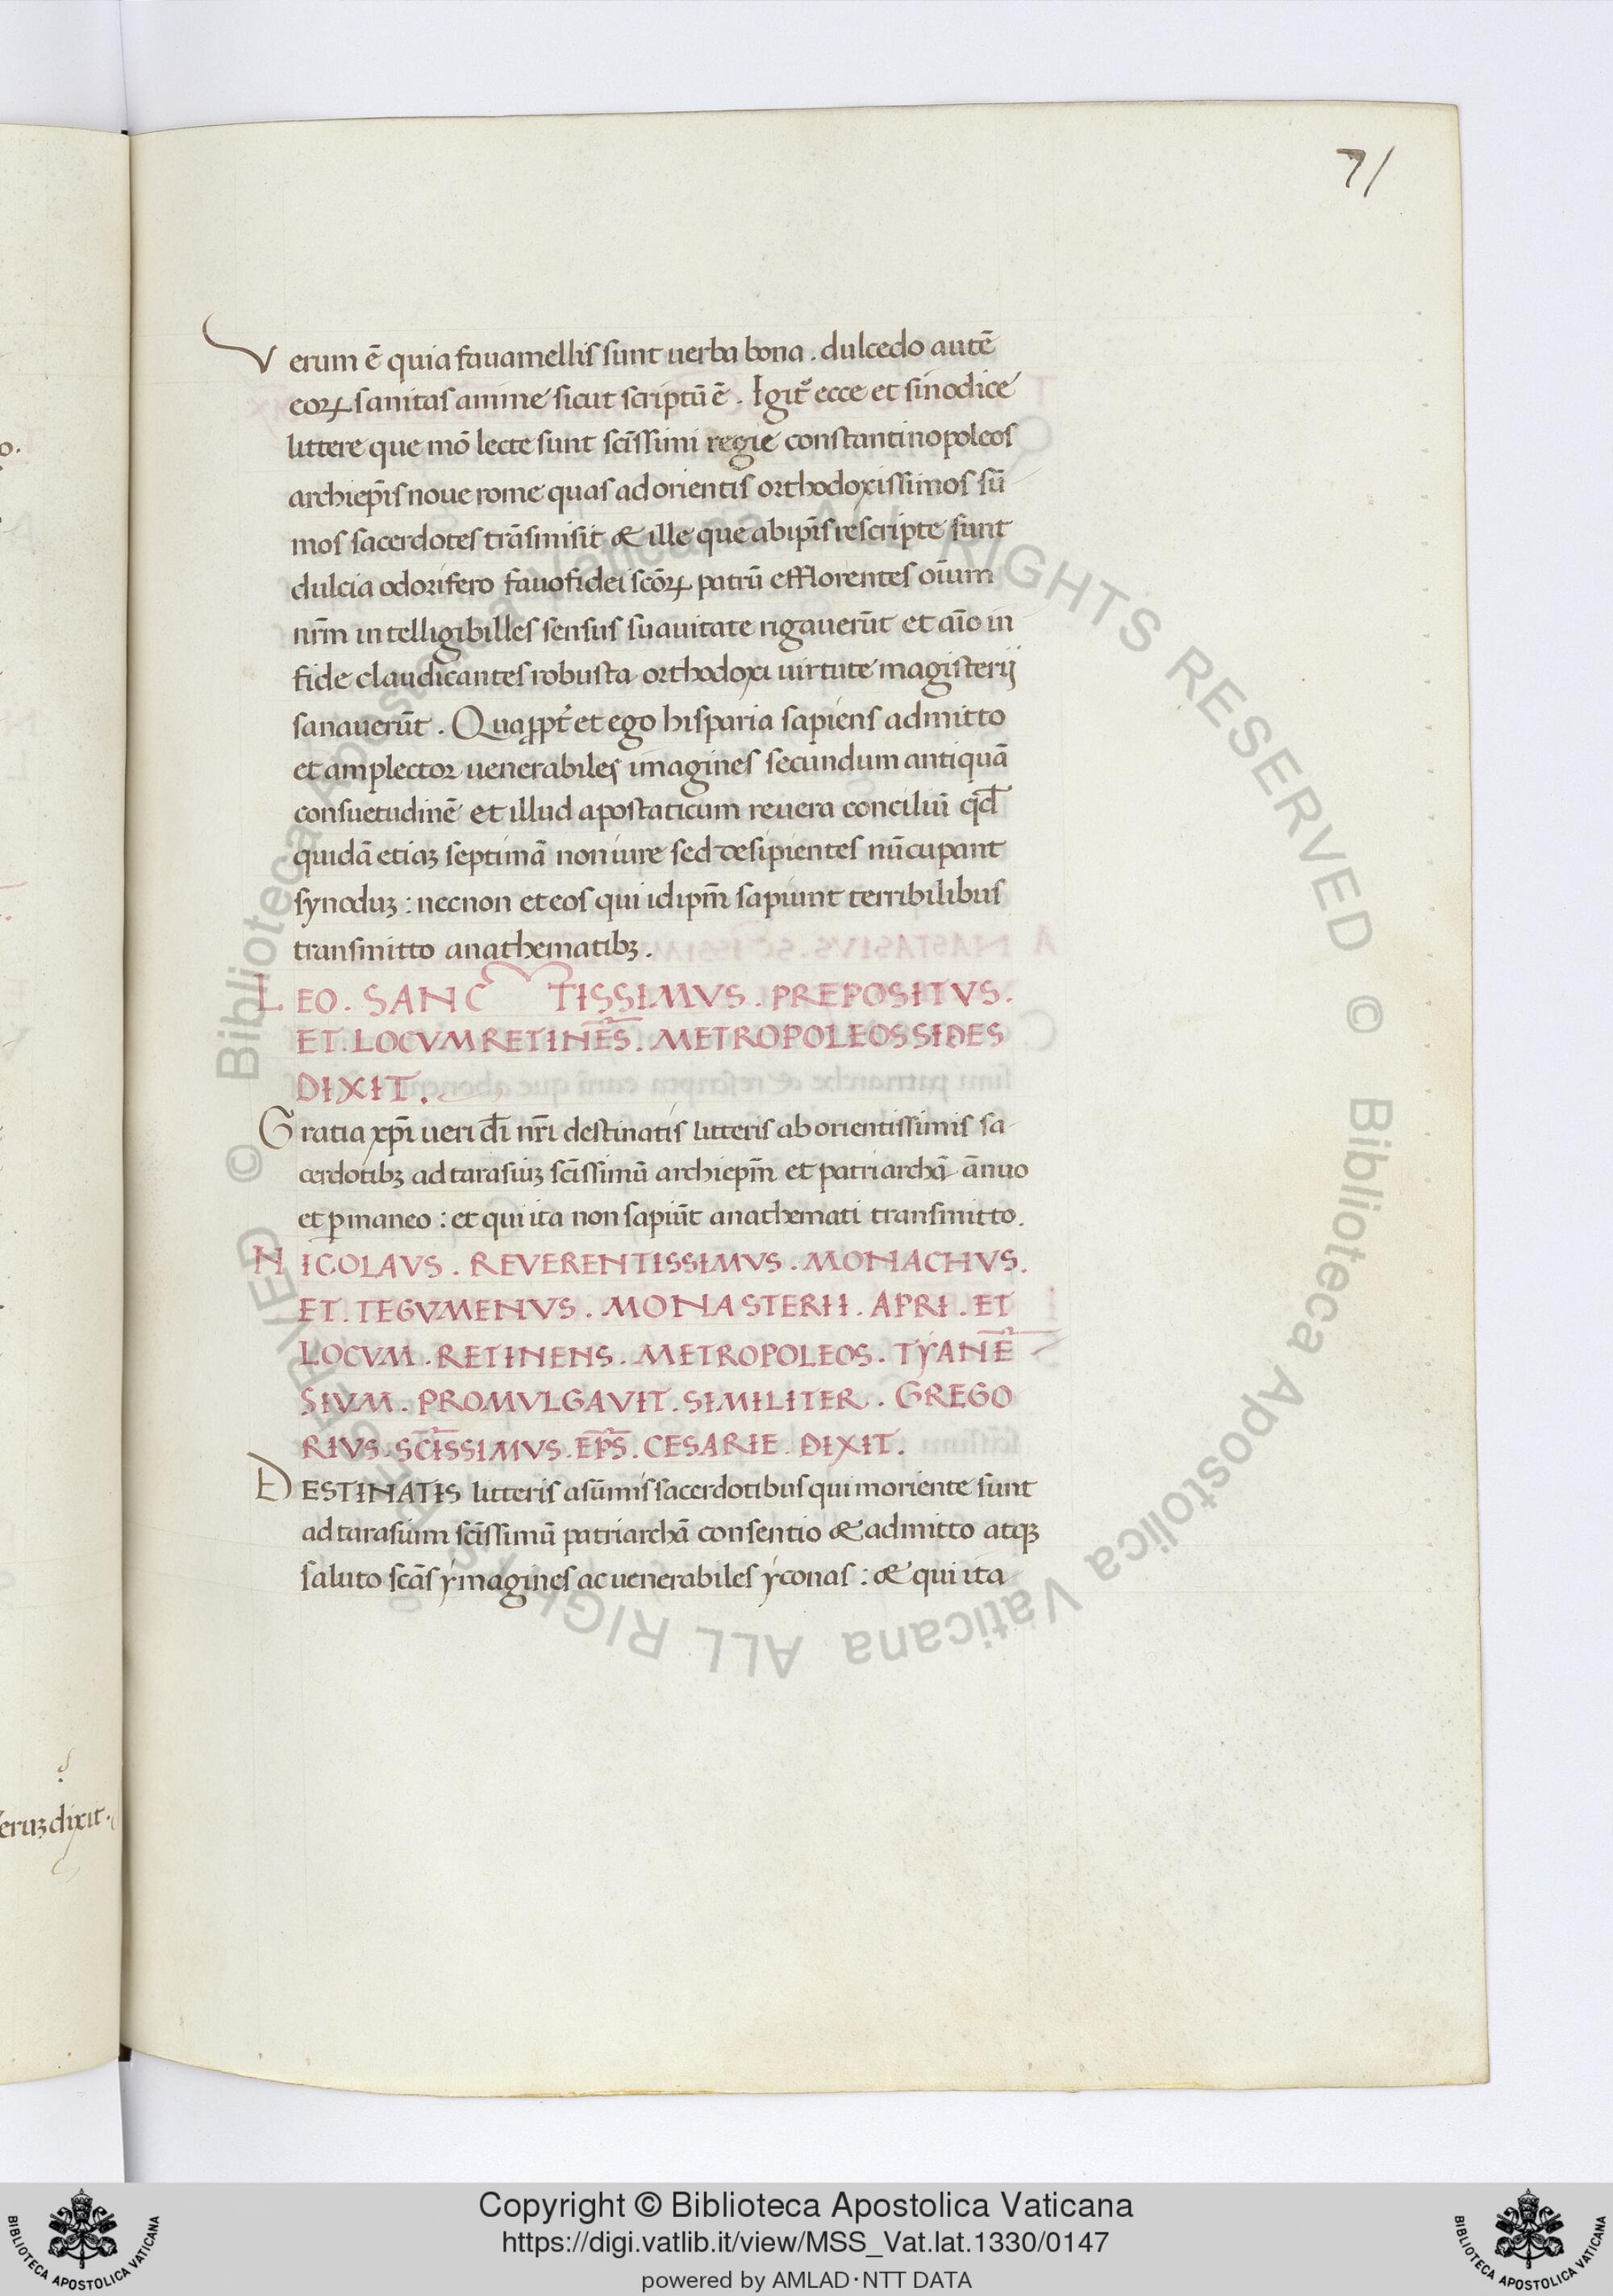 71
Verum ē quia fauamellis sunt uerba bona. dulcedo autē
eoꝝ sanitas anime sicut scriptū ē. Igit᷑ ecce et sinodice
littere que mō lecte sunt sc̄issimi regie constantinopoleos
archiep̄is noue rome quas ad orientis orthodoxissimos sū
mos sacerdotes trāsmisit & ille que ab ip̄is rescripte sunt
dulcia odorifero fauo fidei sc̄oꝝ patrū efflorentes oīum
nr̄m intelligibilles sensus suauitate rigauerūt et aīo in
fide claudicantes robusta orthodoxi uirtute magisterij
sanauerūt. Quaꝓpt̄ et ego hisparia sapiens admitto
et amplector uenerabiles imagines secundum antiquā
consuetudinē et illud apostaticum reuera conciliū qd̄
quidā etiaꝫ septimā non iure sed desipientes nūcupant
synoduꝫ: necnon et eos qui idipm̄ sapiunt terribilibus
transmitto anathematibꝫ.
LEO. SANC TISSIMVS. PREPOSITVS.
ET. LOCVM RETINĒS. METROPOLEOS SIDES
DIXIT.
Gratia xp̄i ueri dī nr̄i destinatis litteris ab orientissimis sa
cerdotibꝫ ad tarasiuꝫ sc̄issimū archiepm̄ et patriarchā ānuo
et ꝑmaneo: et qui ita non sapiūt anathemati transmitto.
NICOLAVS. REVERENTISSIMVS. MONACHVS.
ET. TEGVMENVS. MONASTERII. APRI. ET
LOCVM. RETINENS. METROPOLEOS. TYANĒ
SIVM. PROMVLGAVIT. SIMILITER. GREGO
RIVS. SC̄ISSIMVS. EP̄S. CESARIE. DIXIT.
DESTINATIS litteris a sūmis sacerdotibus qui in oriente sunt
ad tarasium sc̄issimū patriarchā consentio & admitto atqꝫ
saluto sc̄as ymagines ac uenerabiles yconas: & qui ita
eruꝫ dixit.
© Biblioteca Apostolica Vaticana ALL RIGHTS RESERVED © Biblioteca Apostolica Vaticana ALL RIGHTS RESERVED
BIBLIOTECA APOSTOLICA VATICANA
Copyright © Biblioteca Apostolica Vaticana
https://digi.vatlib.it/view/MSS_Vat.lat.1330/0147
powered by AMLAD·NTT DATA
BIBLIOTECA APOSTOLICA VATICANA